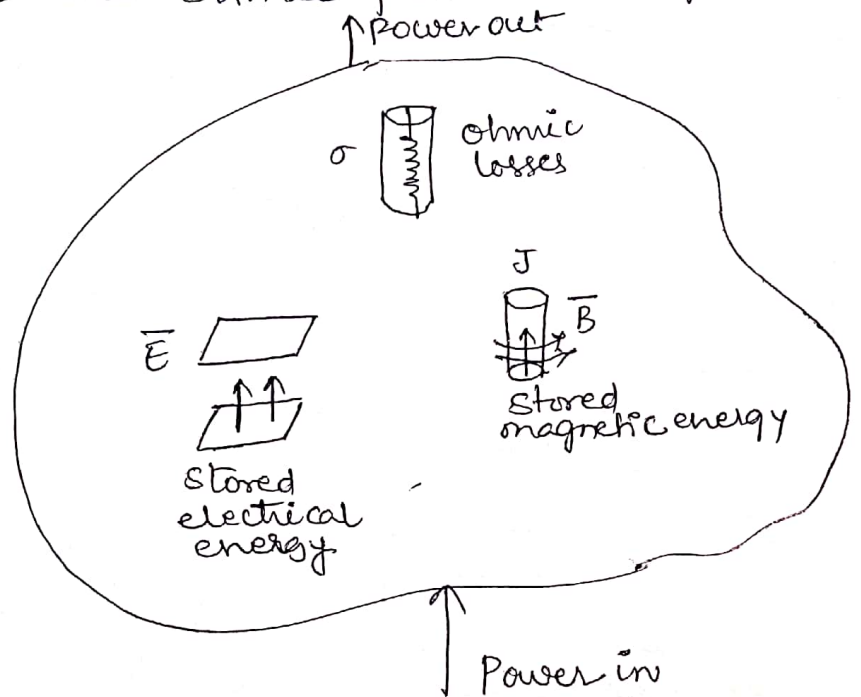 Power out
σ
Ohmic
losses
J
B̅
E̅
Stored
magnetic energy
Stored
electrical
energy
Power in